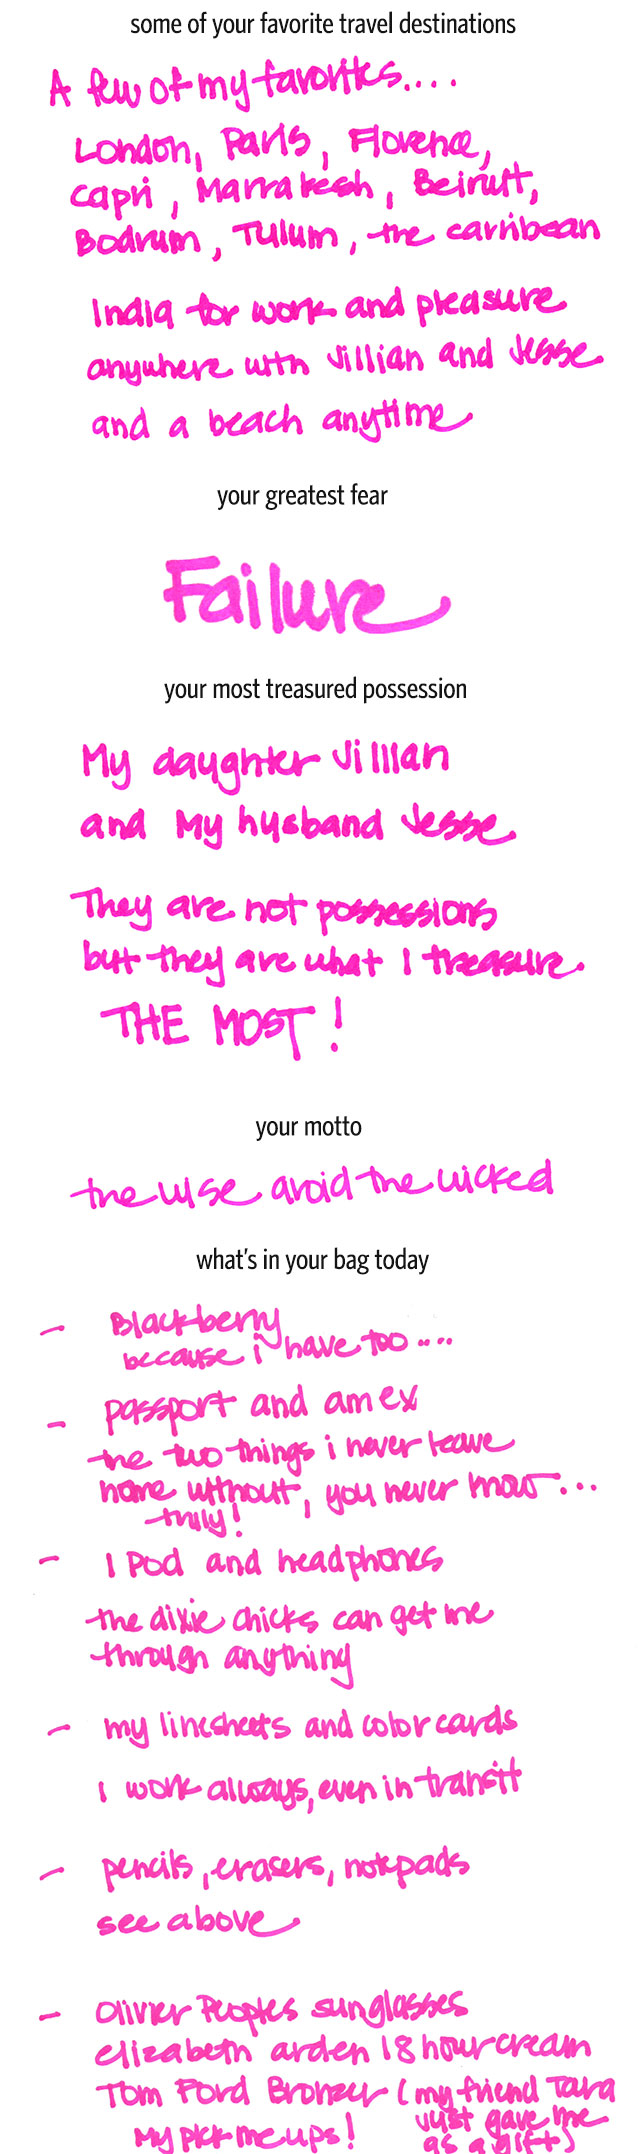 some of your favorite travel destinations
A few of my favorites....
London, Paris, Florence,
Capri, Marrakesh, Beirutt,
Bodrum, Tulum, the carribean
India for work and pleasure
anywhere with Jillian and Jesse
and a beach anytime
your greatest fear
Failure
your most treasured possession
My daughter Jillian
and my husband Jesse
They are not possessions
but they are what I treasure.
THE MOST!
your motto
the wise avoid the wicked
what's in your bag today
- Blackberry
because i have too....
- passport and amex
the two things i never leave
home without, you never know...
truly!
- I Pod and headphones
the dixie chicks can get me
through anything
- my linesheets and color cards
I work always, even in transit
- pencils, erasers, notepads
see above
- Olivier Peoples sunglasses
elizabeth arden 18 hour cream
Tom Ford Bronzer (my friend Tara
just gave me
My pick me ups! as a gift)